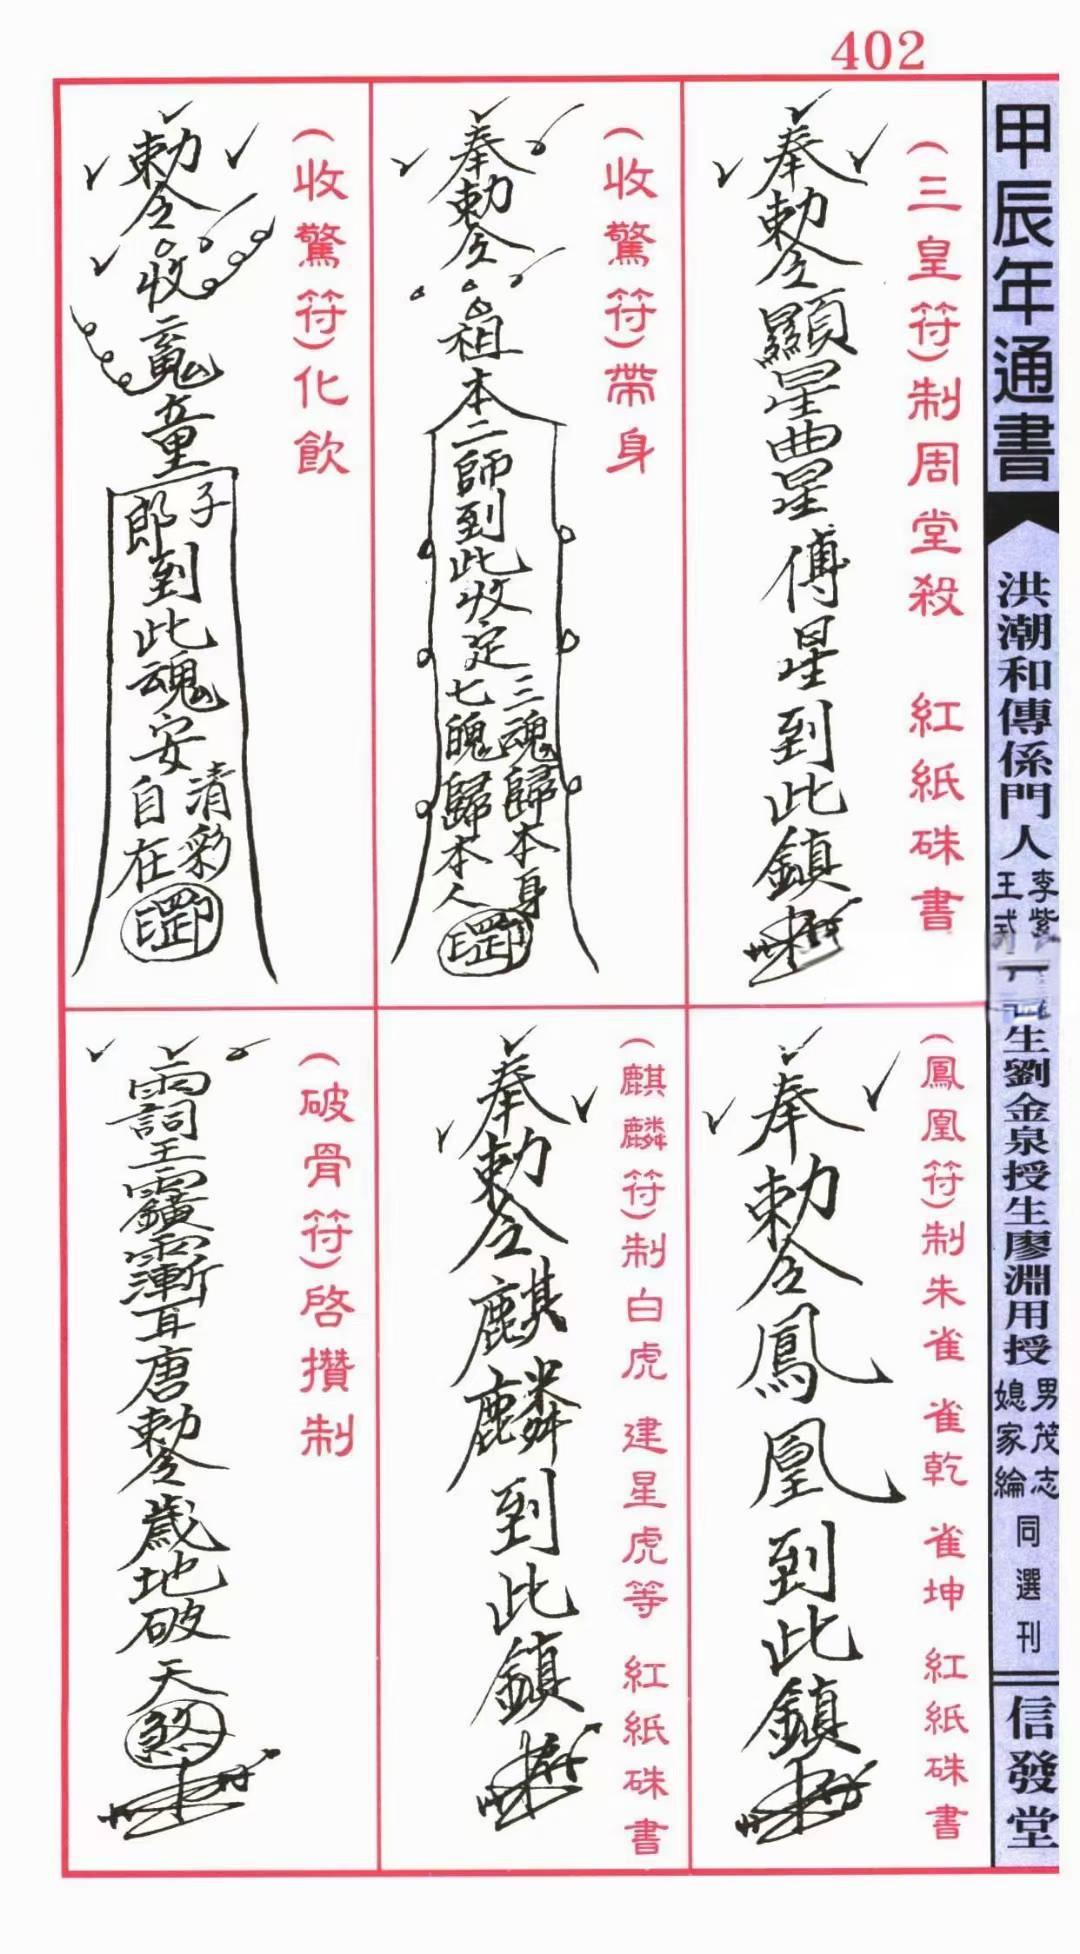 402
甲辰年通書
洪潮和傳係門人
李紫
王式
生劉金泉授生廖淵用授
男茂志
媳家綸
同選刊
信發堂
(三皇符)制周堂殺 紅紙硃書
奉勅令顯星曲星傅星到此鎮
(收驚符)帶身
奉勅令祖本二師到此收定
三魂歸本身
七魄歸本人
罡印
(收驚符)化飲
勅令收魂童
子
郎
到此魂安
清彩
自在
罡印
(鳳凰符)制朱雀 雀乾 雀坤 紅紙硃書
奉勅令鳳凰到此鎮
(麒麟符)制白虎 建星虎等 紅紙硃書
奉勅令麒麟到此鎮
(破骨符)啓攢制
唐勅令歲地破天煞